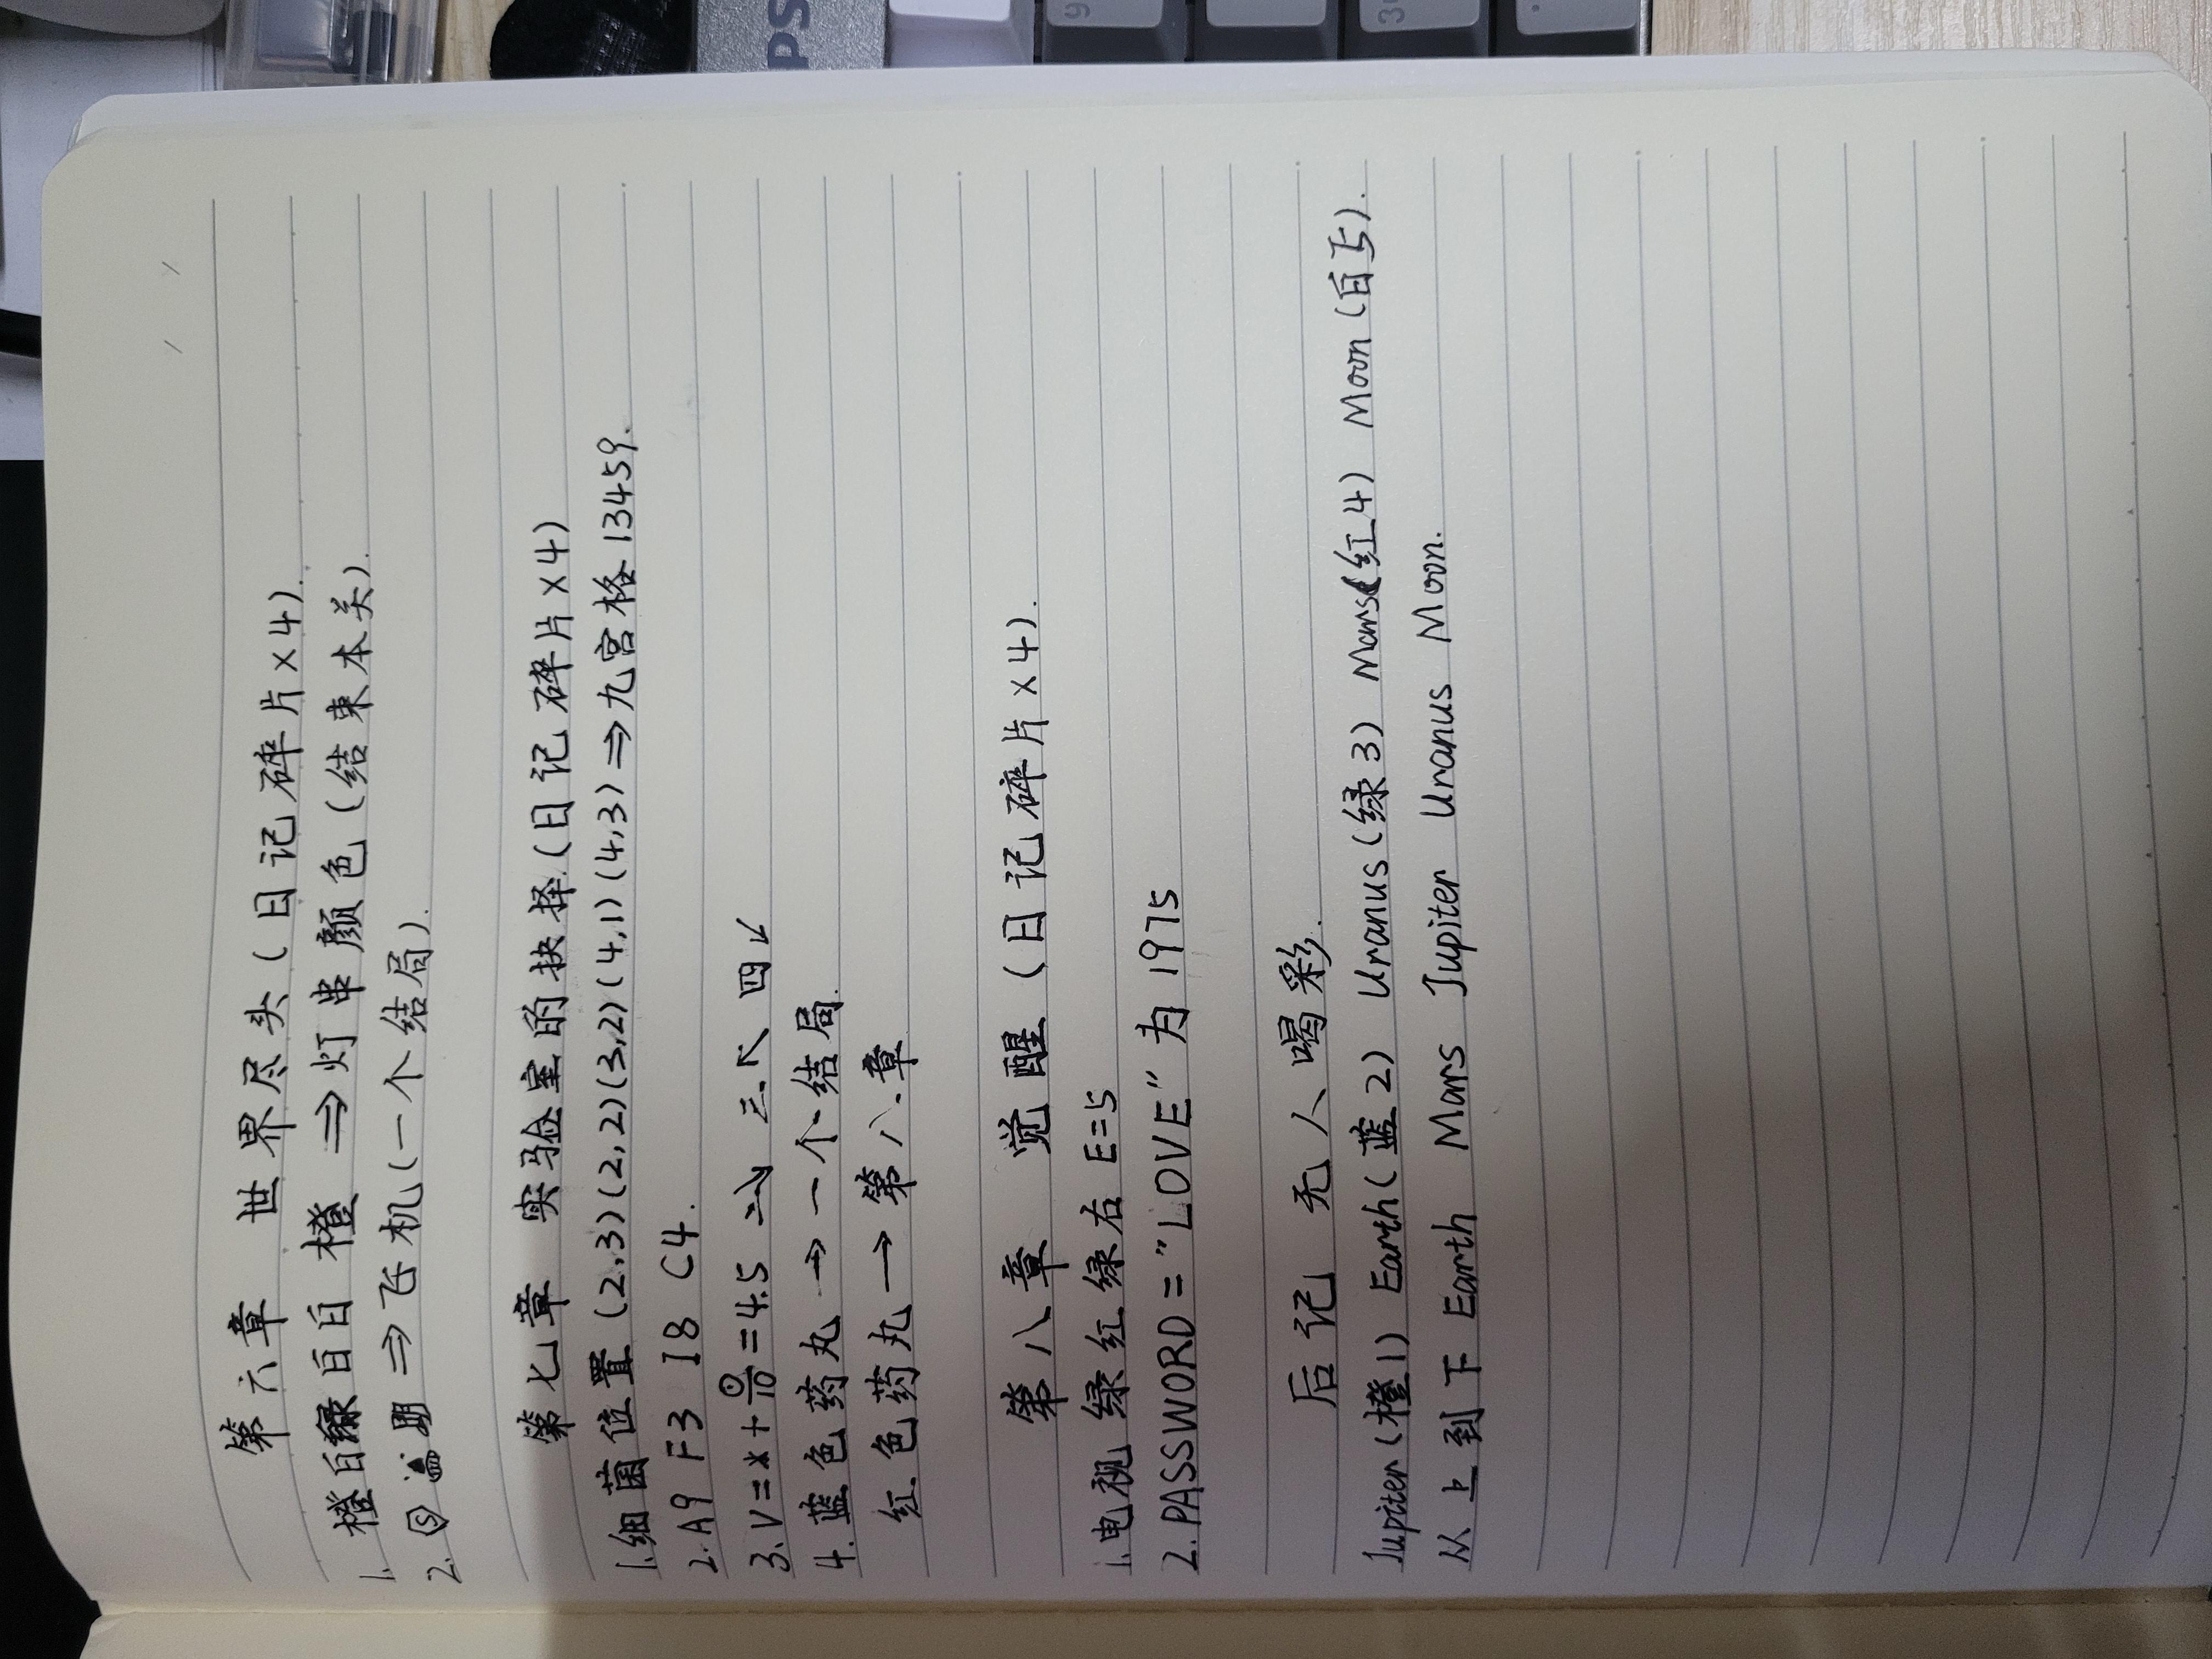 第六章 世界尽头(日记碎片×4).
1. 橙白绿白白橙 ⇒ 灯串颜色(结束本关).
2. ⇒ 飞机(一个结局).
第七章 实验室的抉择(日记碎片×4)
1.细菌位置(2,3)(2,2)(3,2)(4,1)(4,3)⇒九宫格13459.
2. A9 F3 I8 C4.
3. 4.5 三.↖ 四↙
4. 蓝色药丸 → 一个结局.
红色药丸 → 第八章
第八章 觉醒(日记碎片×4).
1.电视 绿绿红红绿右 E=5
2.PASSWORD="LOVE"为1975
后记 无人喝彩.
Jupiter(橙1) Earth(蓝2) Uranus(绿3) Mars(红4) Moon(白5).
从上到下 Earth Mars Jupiter Uranus Moon.